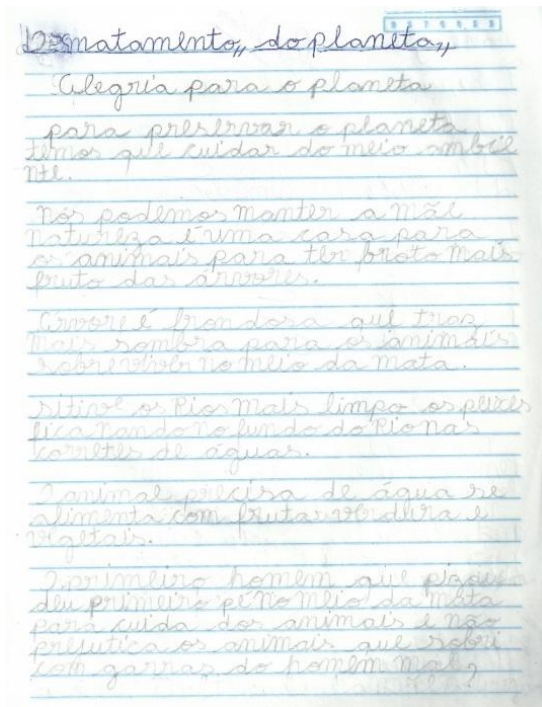 Desmatamento,, do planeta,,
Alegria para o planeta
para preservar o planeta
temos que cuidar do meio ambie
nte.
nós podemos manter a mãe
natureza é uma casa para
os animais para ter broto mais
fruto das árvores.
Crvore é frondosa que tras
mais sombra para os animais
sobreviver no meio da mata.
os Rios mais limpo os peixes
fica nando no fundo do Rio nas
corretes de águas.
O animal precisa de água se
alimenta com frutas verdura e
vigetais.
O primeiro homem que
deu primeiro pé no meio da mata
para cuida dos animais e não
prejutica os animais que sobri
com garras do homem mal,